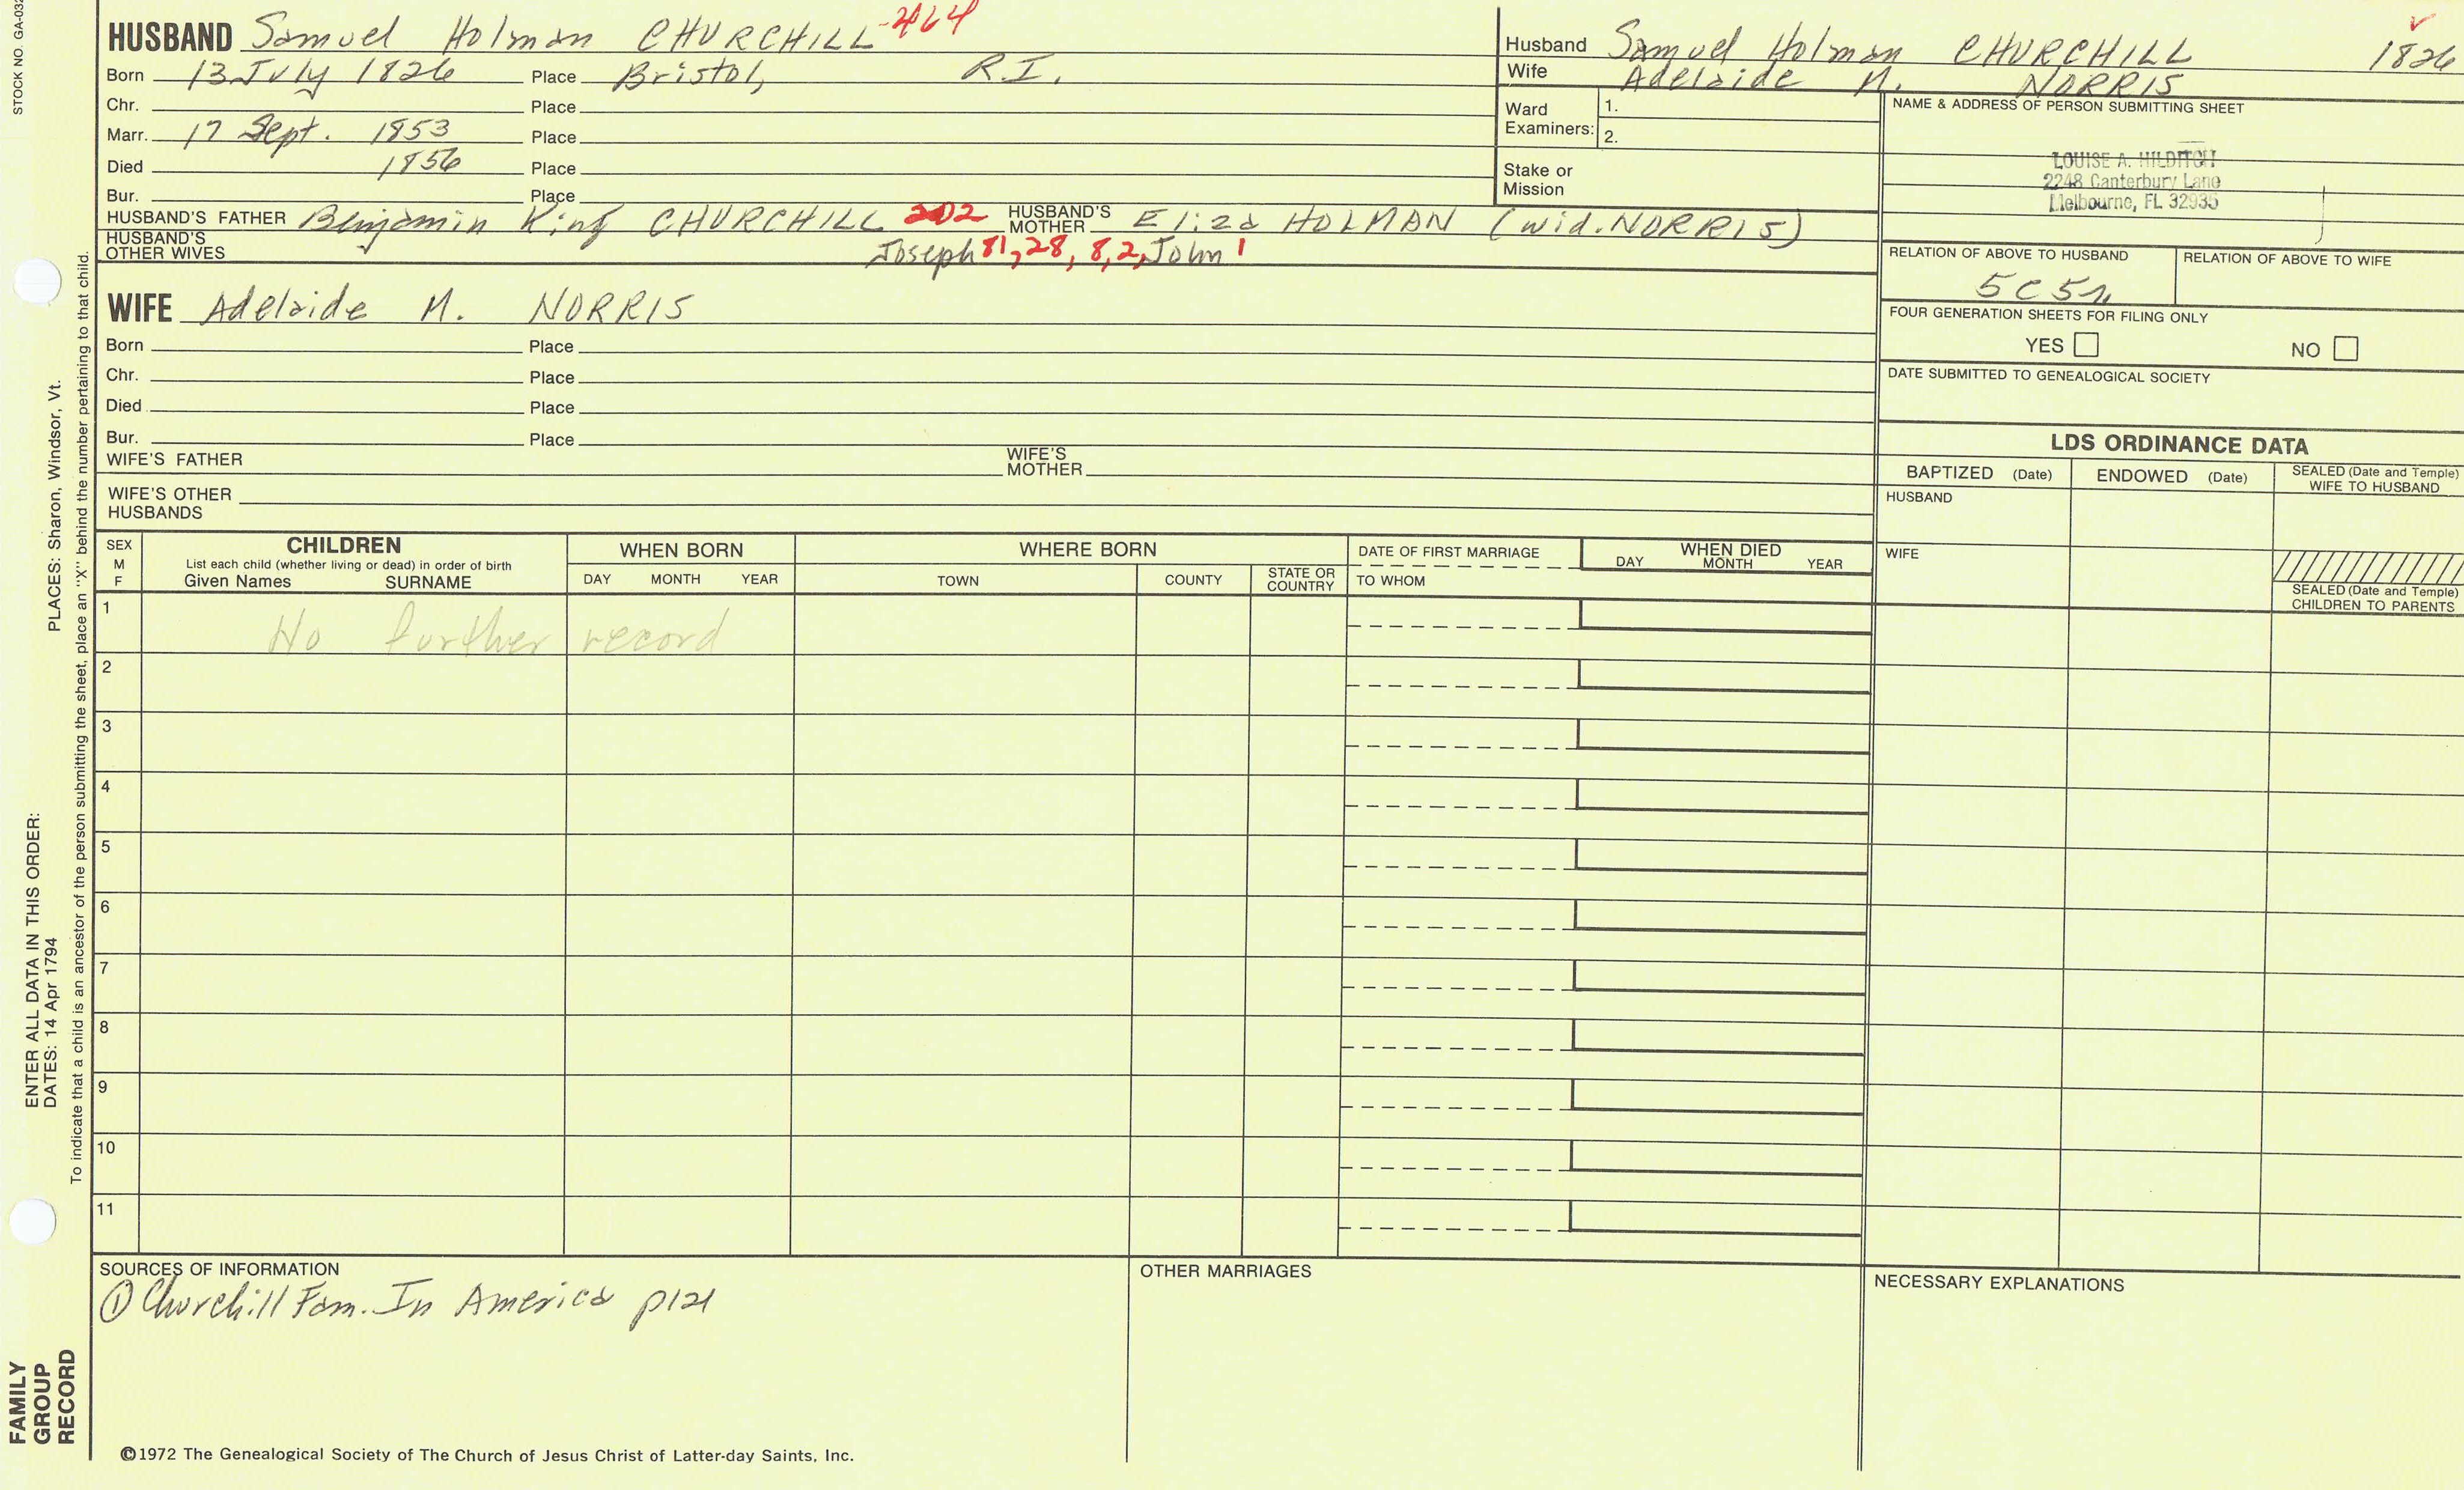 STOCK NO. GA-032
HUSBAND Samuel Holman CHURCHILL -464
Born 13 July 1826 Place Bristol, R.I.
Chr. Place
Marr. 17 Sept. 1853 Place
Died 1856 Place
Bur. Place
HUSBAND'S FATHER Benjamin King CHURCHILL 202 HUSBAND'S MOTHER Eliza HOLMAN (wid. NORRIS)
HUSBAND'S OTHER WIVES
Joseph 81, 28, 8, 2, John 1
WIFE Adelaide M. NORRIS
Born Place
Chr. Place
Died Place
Bur. Place
WIFE'S FATHER WIFE'S MOTHER
WIFE'S OTHER HUSBANDS
Husband Samuel Holman CHURCHILL 1826
Wife Adelaide M. NORRIS
Ward Examiners: 1.
2.
Stake or Mission
NAME & ADDRESS OF PERSON SUBMITTING SHEET
LOUISE A. HILDITCH
2248 Canterbury Lane
Melbourne, FL 32935
RELATION OF ABOVE TO HUSBAND RELATION OF ABOVE TO WIFE
5C5r
FOUR GENERATION SHEETS FOR FILING ONLY
YES NO
DATE SUBMITTED TO GENEALOGICAL SOCIETY
LDS ORDINANCE DATA
BAPTIZED (Date) ENDOWED (Date) SEALED (Date and Temple) WIFE TO HUSBAND
HUSBAND
WIFE
SEALED (Date and Temple) CHILDREN TO PARENTS
SEX M F
CHILDREN
List each child (whether living or dead) in order of birth
Given Names SURNAME
WHEN BORN
DAY MONTH YEAR
WHERE BORN
TOWN COUNTY STATE OR COUNTRY
DATE OF FIRST MARRIAGE
TO WHOM
WHEN DIED
DAY MONTH YEAR
1 No further record
2
3
4
5
6
7
8
9
10
11
SOURCES OF INFORMATION
① Churchill Fam. In America p121
OTHER MARRIAGES
NECESSARY EXPLANATIONS
©1972 The Genealogical Society of The Church of Jesus Christ of Latter-day Saints, Inc.
FAMILY GROUP RECORD
ENTER ALL DATA IN THIS ORDER:
DATES: 14 Apr 1794 PLACES: Sharon, Windsor, Vt.
To indicate that a child is an ancestor of the person submitting the sheet, place an "X" behind the number pertaining to that child.